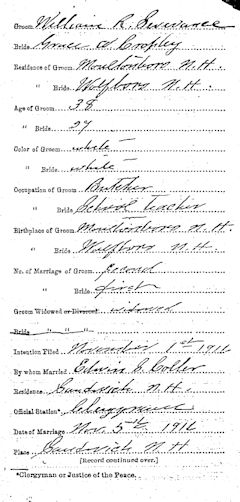 Groom William R. Severance
Bride Grace A Cropley
Residence of Groom Moultonboro N.H.
" Bride Wolfboro N.H.
Age of Groom 38
" Bride 27
Color of Groom white
" Bride white
Occupation of Groom Butcher
" Bride School Teacher
Birthplace of Groom Moultonboro N.H.
" Bride Wolfboro N.H.
No. of Marriage of Groom second
" Bride first
Groom Widowed or Divorced widowed
Bride " " "
Intention Filed November 1st 1916
By whom Married Edwin S.
Residence Sandwich N.H.
Official Station* Clergyman
Date of Marriage Nov. 5th 1916
Place Sandwich N H
[Record continued over.]
*Clergyman or Justice of the Peace.